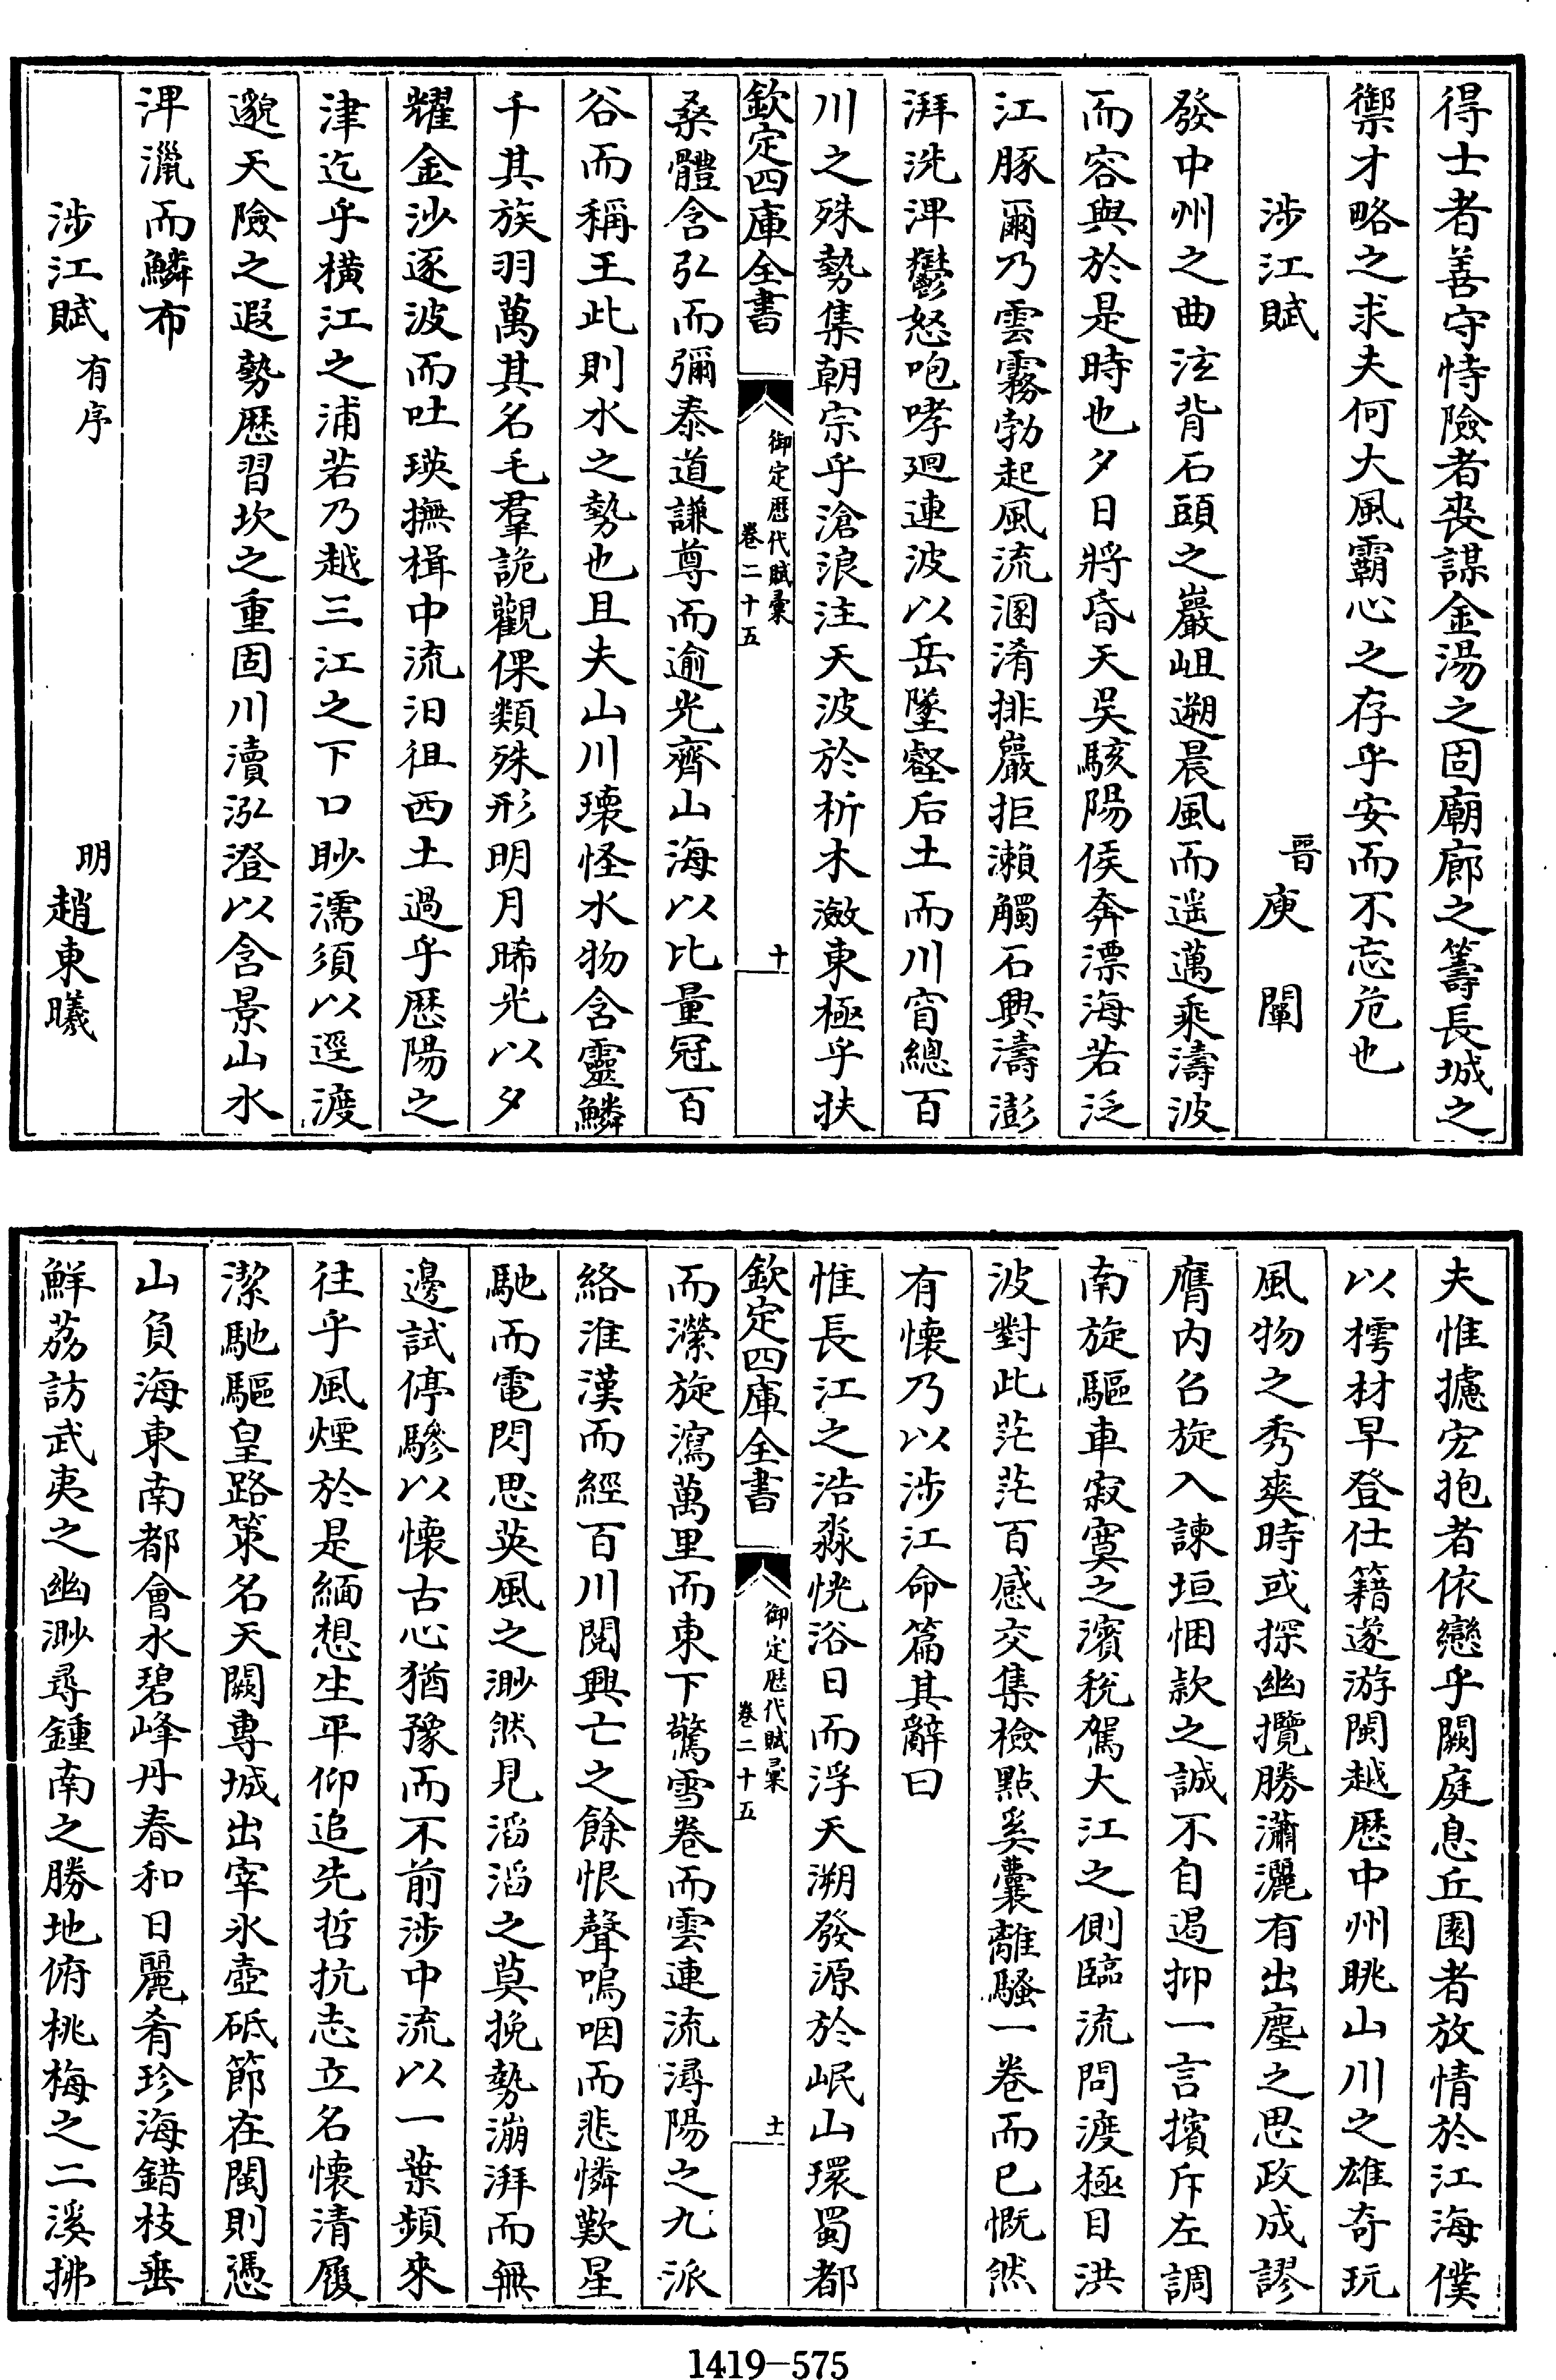 得士者善守恃險者喪謀金湯之固廟廊之籌長城之
禦才略之求夫何大風霸心之存乎安而不忘危也
涉江賦 晉庾闡
發中州之曲泫背石頭之巖岨遡晨風而遥邁乘濤波
而容與於是時也夕日將昏天吳駭陽侯奔漂海若泛
江豚爾乃雲霧勃起風流溷淆排巖拒瀨觸石興濤澎
湃洸淠鬱怒咆哮廻連波以岳墜壑后土而川窅總百
川之殊勢集朝宗乎滄浪注天波於析木瀲東極乎扶
欽定四庫全書 御定歴代賦彙 卷二十五 十
桑體含弘而彌泰道謙尊而逾光齊山海以比量冠百
谷而稱王此則水之勢也且夫山川瓌怪水物含靈鱗
千其族羽萬其名毛羣詭觀倮類殊形明月晞光以夕
耀金沙逐波而吐瑛撫楫中流汨徂西土過乎歴陽之
津迄乎橫江之浦若乃越三江之下口眇濡須以逕渡
邈天險之遐勢歴習坎之重固川瀆泓澄以含景山水
淠㶀而鱗布
涉江賦有序 明趙東曦
夫惟攄宏抱者依戀乎闕庭息丘園者放情於江海僕
以樗材早登仕籍遂游閩越歴中州眺山川之雄奇玩
風物之秀爽時或探幽攬勝瀟灑有出塵之思政成謬
膺内召旋入諫垣悃款之誠不自遏抑一言擯斥左調
南旋驅車寂寞之濱稅駕大江之側臨流問渡極目洪
波對此茫茫百感交集檢點奚囊離騷一卷而已慨然
有懷乃以涉江命篇其辭曰
惟長江之浩淼恍浴日而浮天溯發源於岷山環蜀都
欽定四庫全書 御定歴代賦彙 卷二十五 十一
而瀠旋瀉萬里而東下驚雪卷而雲連流潯陽之九派
絡淮漢而經百川閱興亡之餘恨聲嗚咽而悲憐歎星
馳而電閃思英風之渺然見滔滔之莫挽勢漰湃而無
邊試停驂以懷古心猶豫而不前涉中流以一葉頻來
往乎風煙於是緬想生平仰追先哲抗志立名懷清履
潔馳驅皇路策名天闕專城出宰氷壺砥節在閩則憑
山負海東南都會水碧峰丹春和日麗肴珍海錯枝垂
鮮荔訪武夷之幽渺尋鍾南之勝地俯桃梅之二溪拂
1419-575